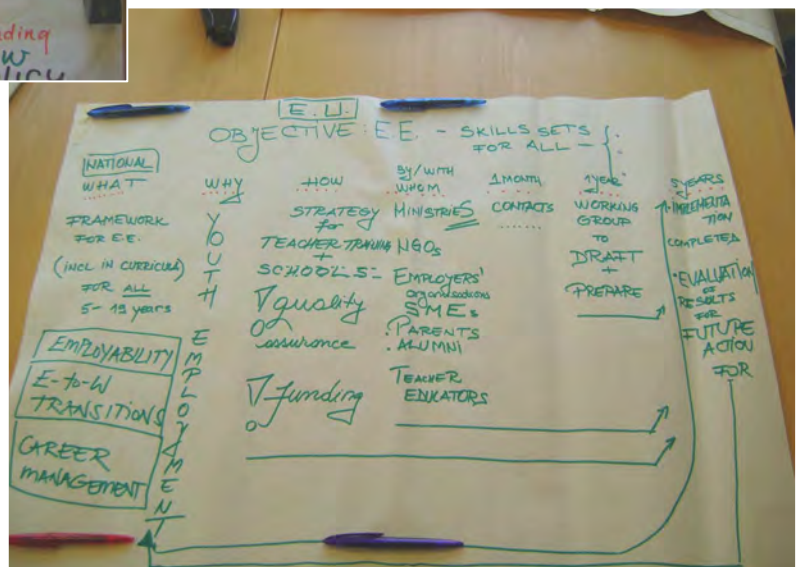 ding
W
E.U.
OBJECTIVE: E.E. - SKILLS SETS
FOR ALL -
NATIONAL
WHAT
FRAMEWORK
FOR E.E.
(INCL IN CURRICULA)
FOR ALL
5-19 years
EMPLOYABILITY
E-to-W
TRANSITIONS
CAREER
MANAGEMENT
WHY
YOUTH
EMPLOYMENT
HOW
STRATEGY
for
TEACHER TRAINING
+
SCHOOLS-
quality
assurance
funding
BY/WITH
WHOM
MINISTRIES
NGOs
EMPLOYERS'
organisations
SMEs
.PARENTS
.ALUMNI
TEACHER
EDUCATORS
1 MONTH
CONTACTS
1 YEAR
WORKING
GROUP
TO
DRAFT
+
PREPARE
5 YEARS
• IMPLEMENTA
TION
COMPLETED
• EVALUATION
OF
RESULTS
FOR
FUTURE
ACTION
FOR